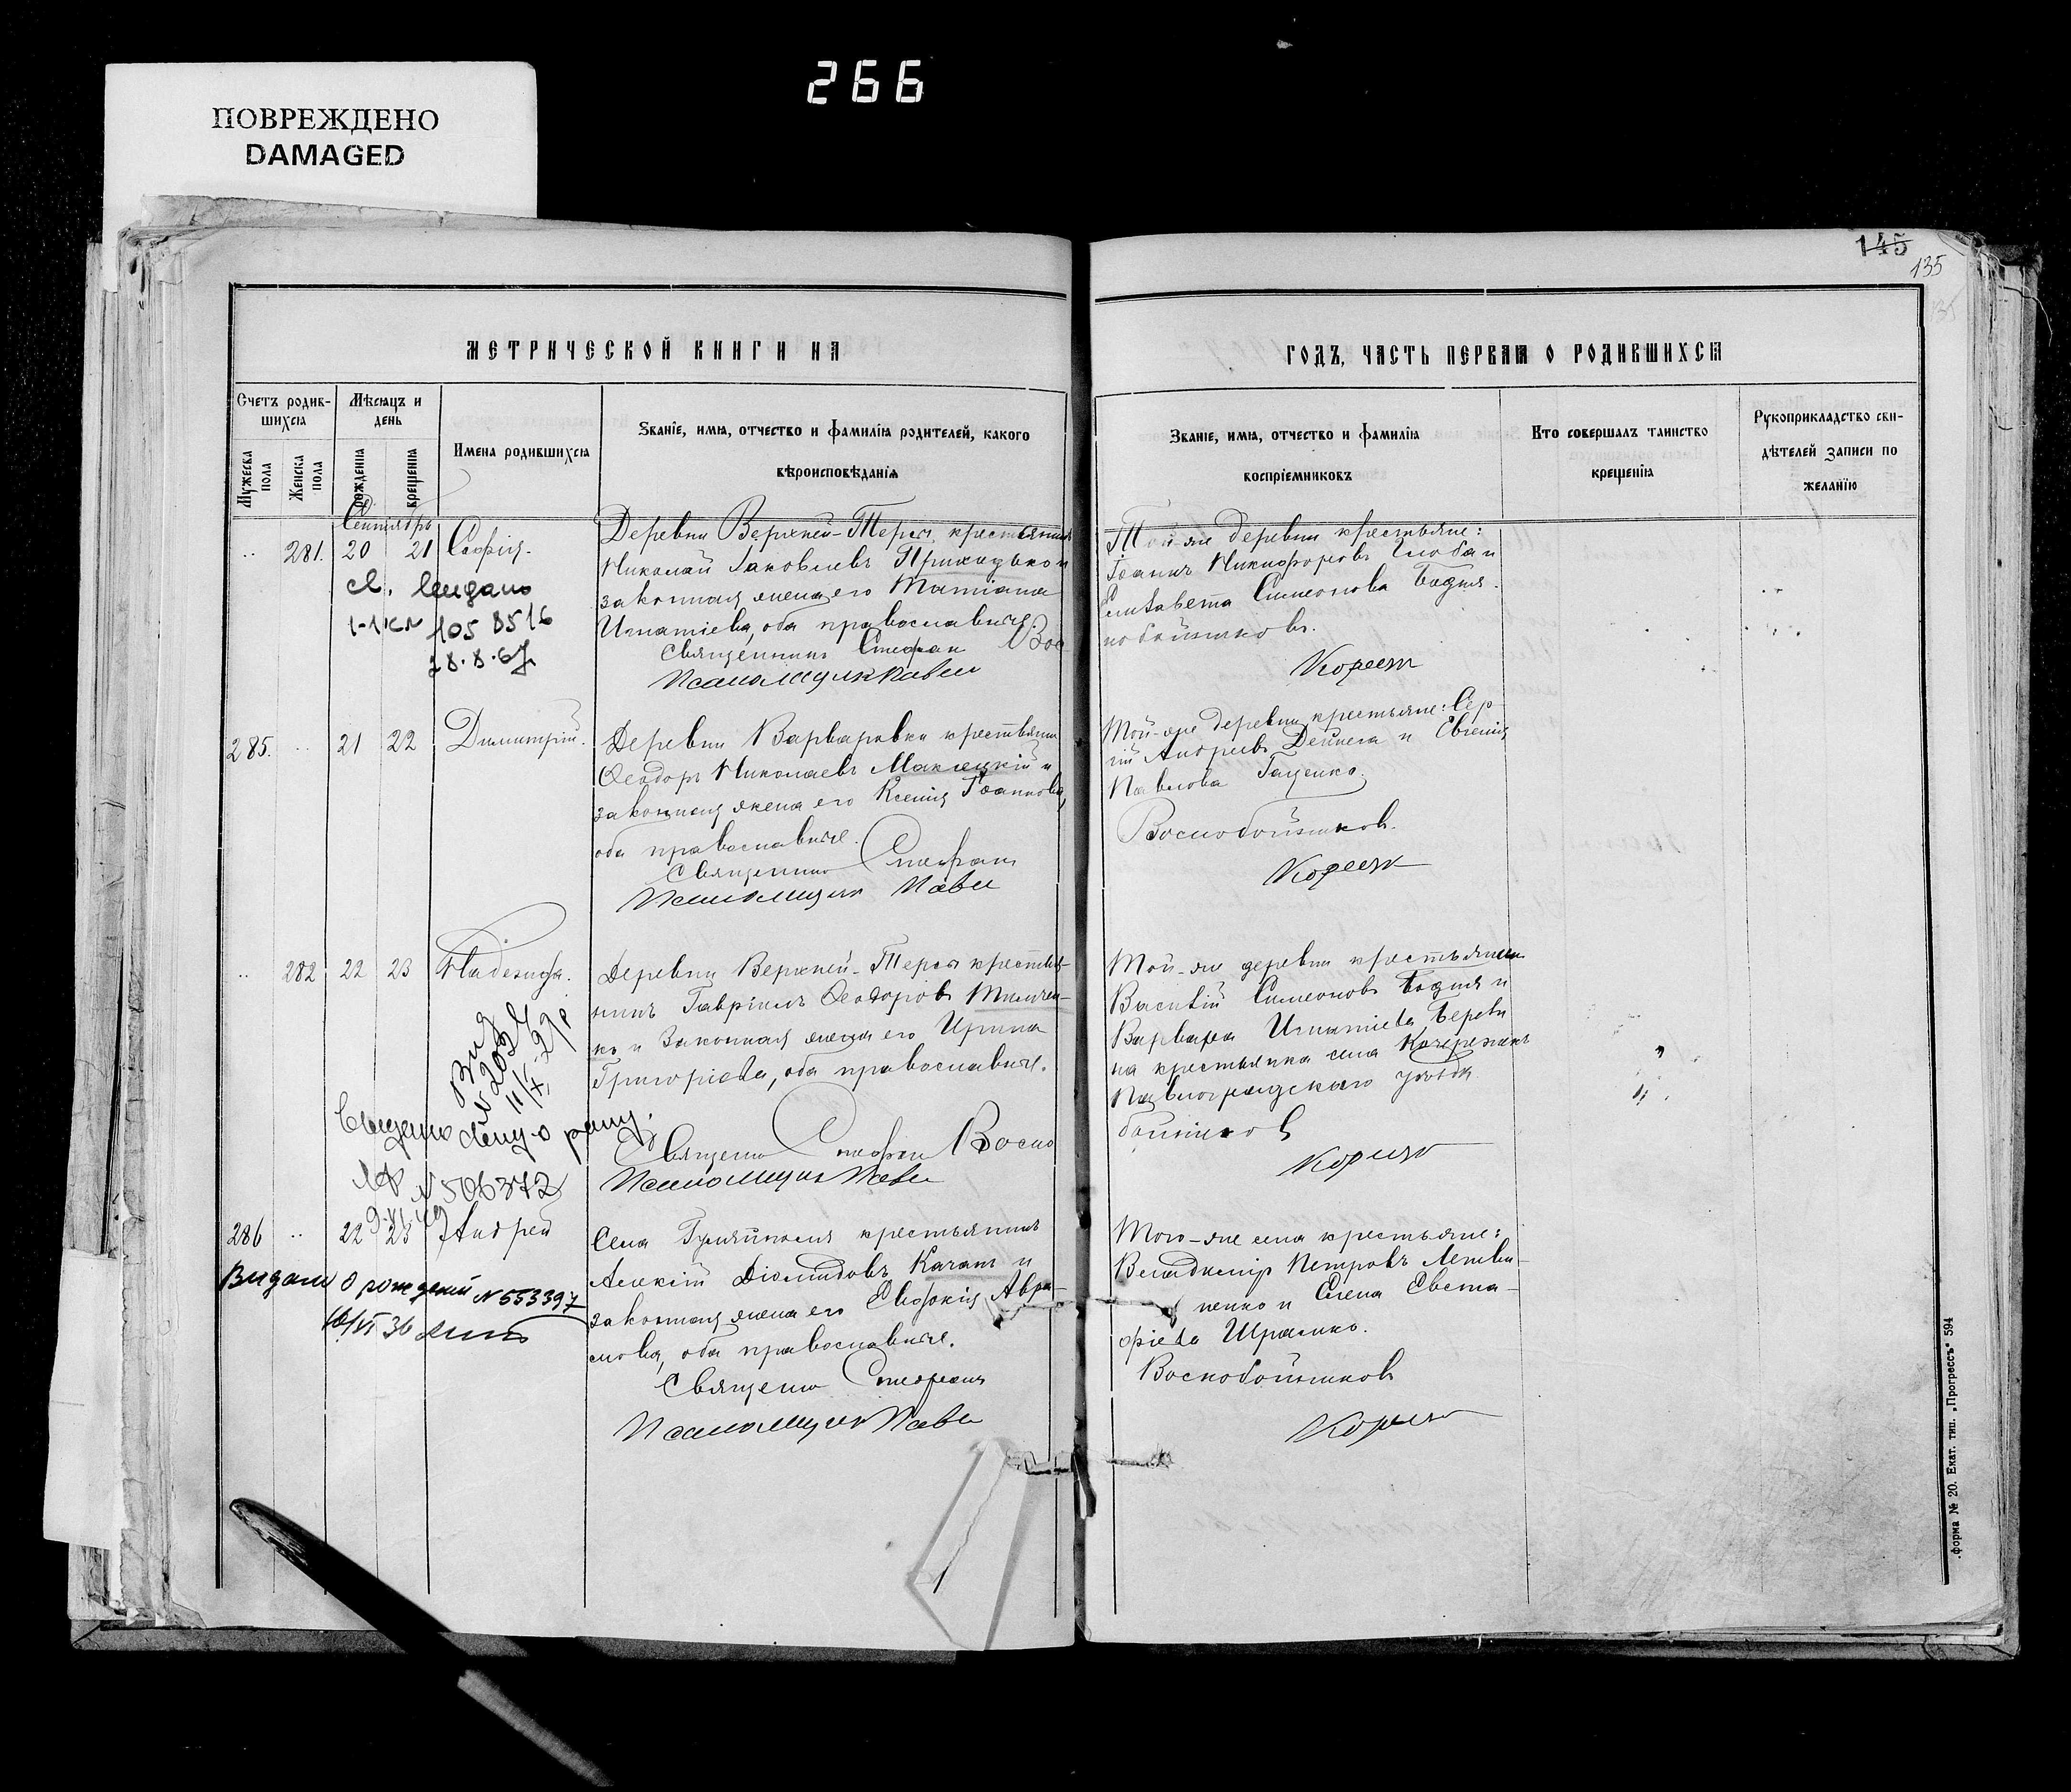 266
ПОВРЕЖДЕНО
DAMAGED
145
135
МЕТРИЧЕСКОЙ КНИГИ НА
ГОДЪ, ЧАСТЬ ПЕРВАЯ О РОДИВШИХСЯ
Счетъ родив-
шихся
Мужеска пола
Женска пола
Мѣсяцъ и
день
рожденія
крещенія
Имена родившихся
Званіе, имя, отчество и фамилія родителей, какого
вѣроисповѣданія
Званіе, имя, отчество и фамилія
воспріемниковъ
Кто совершалъ таинство
крещенія
Рукоприкладство сви-
дѣтелей записи по
желанію
Сентябрь
281. 20 21 Софія.
Деревни Верхней-Терсы крестьянинъ
Николай Іаковлевъ Приходько и
законная жена его Татіана
Игнатіева, оба православные.
Священникъ Стефан Вос
Псаломщик Павел
Той-же деревни крестьяне:
Іоаннъ Никифоровъ Глоба и
Елисавета Симеонова Бодня.
кобойников.
Корсун
выдано
105 8516
28.8.67
285. 21 22 Димитрій.
Деревни Варваровки крестьянин
Ѳеодоръ Николаевъ Маклецкій и
законная жена его Ксенія Іоаннова,
оба православные.
Священник Стефан
Псаломщик Павел
Той-же деревни крестьяне: Сер-
гій Андреевъ Дейнега и Евгенія
Павлова Гаценко.
Воскобойников.
282 22 23 Надежда.
Деревни Верхней-Терсы крестья-
нинъ Гавріилъ Ѳеодоровъ Тимчен-
ко и законная жена его Ирина
Григоріева, оба православные.
Священ Стефан Воско
Псаломщик Павел
Той-же деревни крестьянин
Василій Симеоновъ Бодня и
Варвара Игнатіева
на крестьянка села Кочережекъ
Павлоградскаго уѣзда
бойников
N 2032
11/X-29р
Выдано
N 506372
286 22 23 Андрей
Села Гуляйполя крестьянинъ
Алексій Діомидовъ Качанъ и
законная жена его Евдокія Авра-
мова, оба православные.
Священ Стефан
Псаломщик Павел
Того-же села крестьяне:
Владиміръ Петровъ Литви-
ненко и Елена Евста-
фіева Шрамко.
Воскобойников
Видано о рождении N 553397
16/VI 36
.форма № 20. Екат. тип. „Прогрессъ" 594